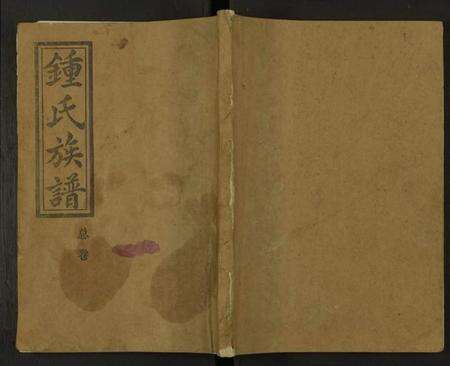 鍾氏族譜
总卷